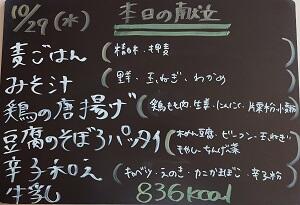 10/29(水) 本日の献立
麦ごはん(精白米・押麦
みそ汁(
鶏の唐揚げ(鶏もも肉・生姜・にんにく・片栗粉・小麦粉
豆腐のそぼろパッタイ(木めん豆腐・ビーフン・玉ねぎ
もやし・ちんげん菜
辛子和え(キャベツ・えのき・カニかまぼこ・辛子粉
牛乳 836kcal